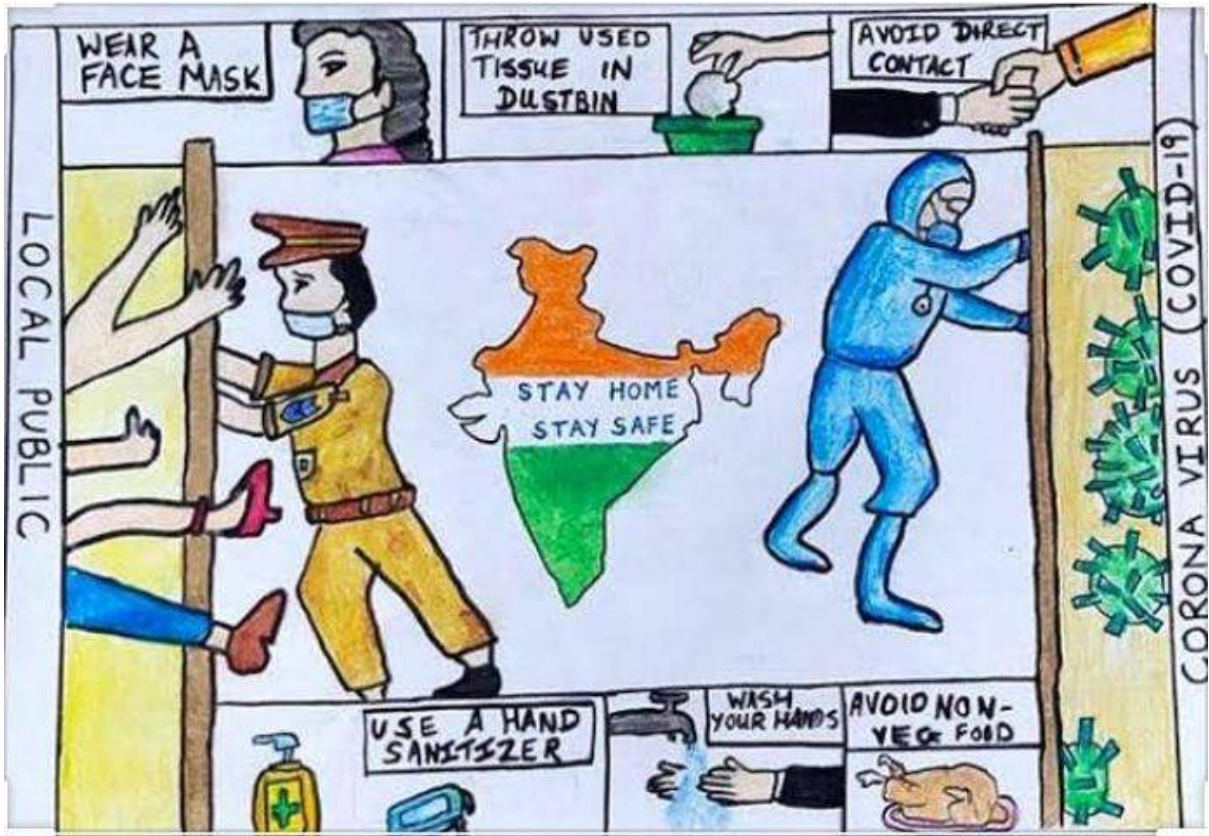 WEAR A
FACE MASK
THROW USED
TISSUE IN
DUSTBIN
AVOID DIRECT
CONTACT
LOCAL PUBLIC
STAY HOME
STAY SAFE
CORONA VIRUS (COVID-19)
USE A HAND
SANITIZER
WASH
YOUR HANDS
AVOID NON-
VEG FOOD